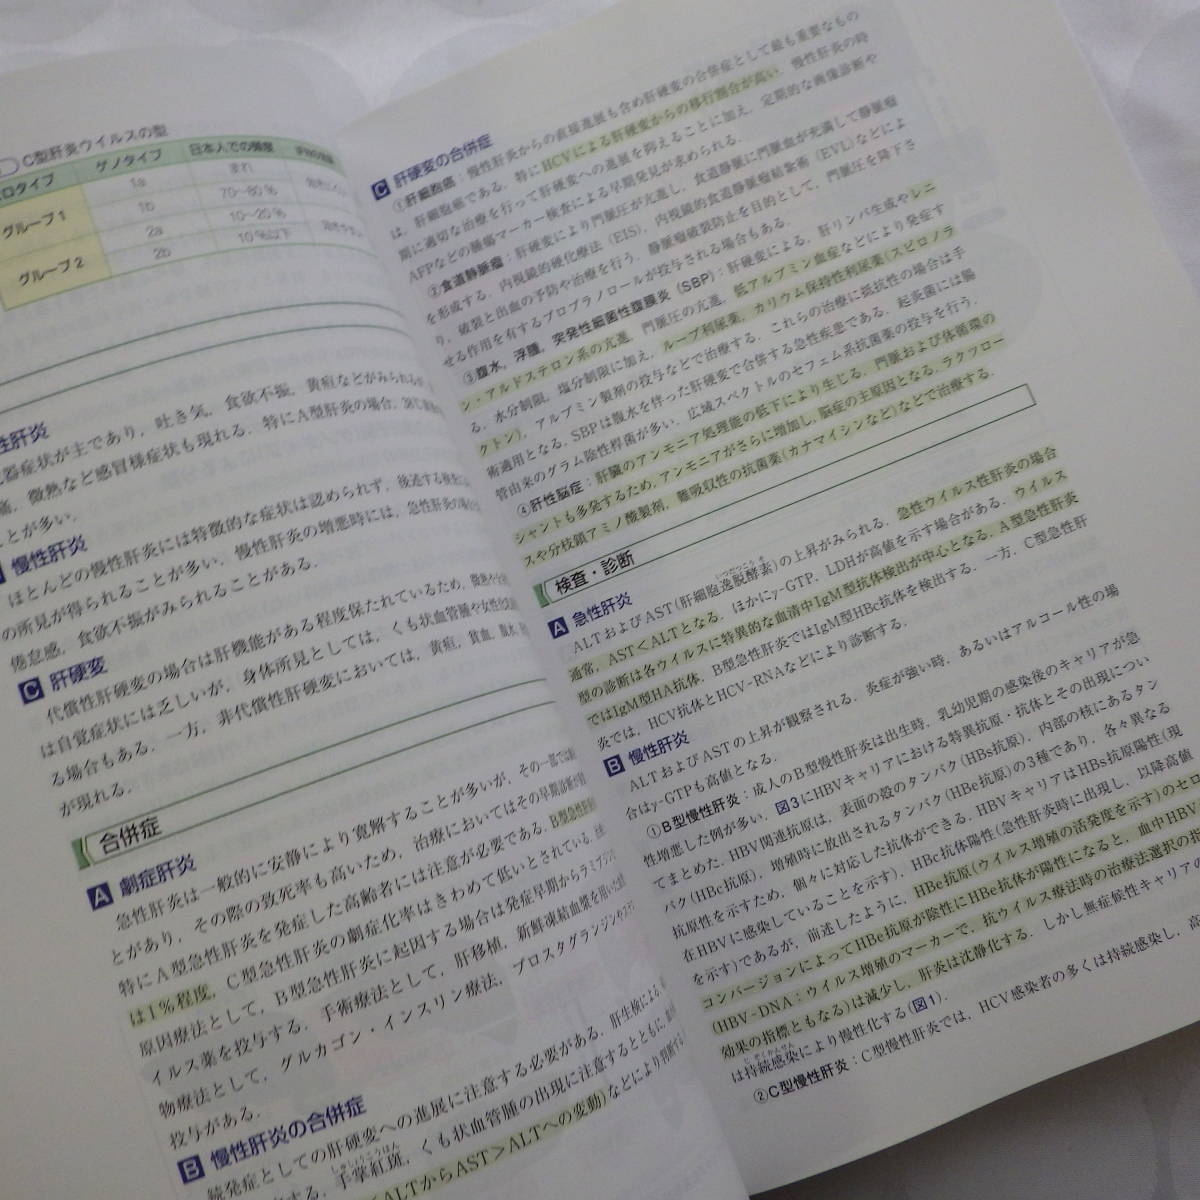 C型肝炎ウイルスの型
ロタイプ ゲノタイプ 日本人での頻度
グループ1 1a まれ
1b 70~80%
グループ2 2a 10~20%
2b 10%以下
性肝炎
器症状が主であり，吐き気，食欲不振，黄疸などがみられるが，
痛，微熱など感冒様症状も現れる．特にA型肝炎の場合，
ことが多い．
慢性肝炎
ほとんどの慢性肝炎には特徴的な症状は認められず，後述する検査
の所見が得られることが多い．慢性肝炎の増悪時には，急性肝炎の場合
倦怠感，食欲不振がみられることがある．
C 肝硬変
代償性肝硬変の場合は肝機能がある程度保たれているため，
は自覚症状には乏しいが，身体所見としては，くも状血管腫や女性化
る場合もある．一方，非代償性肝硬変においては，黄疸，貧血，腹水
が現れる．
合併症
A 劇症肝炎
急性肝炎は一般的に安静により寛解することが多いが，その一部では
とがあり，その際の致死率も高いため，治療においてはその早期診断が
特にA型急性肝炎を発症した高齢者には注意が必要である．B型急性肝炎
は1%程度，C型急性肝炎の劇症化率はきわめて低いとされている．
原因療法として，B型急性肝炎に起因する場合は発症早期からラミブジン
イルス薬を投与する．手術療法として，肝移植，新鮮凍結血漿を用いた
物療法として，グルカゴン・インスリン療法，プロスタグランジン
投与がある．
B 慢性肝炎の合併症
続発症としての肝硬変への進展に注意する必要がある．肝生検による，
する．手掌紅斑，くも状血管腫の出現に注意するとともに，
<ALTからAST>ALTへの変動）などにより判断する
C 肝硬変の合併症
①肝細胞癌：慢性肝炎からの直接進展も含め肝硬変の合併症として最も重要なもの
は，肝細胞癌である．特にHCVによる肝硬変からの移行割合が高い．慢性肝炎の時
期に適切な治療を行って肝硬変への進展を抑えることに加え，定期的な画像診断や
AFPなどの腫瘍マーカー検査による早期発見が求められる．
②食道静脈瘤：肝硬変により門脈圧が亢進し，食道静脈に門脈血が充満して静脈瘤
を形成する．内視鏡的硬化療法（EIS），内視鏡的食道静脈瘤結紮術（EVL）などによ
り，破裂と出血の予防や治療を行う．静脈瘤破裂防止を目的として，門脈圧を降下さ
せる作用を有するプロプラノロールが投与される場合もある．
③腹水，浮腫，突発性細菌性腹膜炎（SBP）：肝硬変による，肝リンパ生成やレニ
ン・アルドステロン系の亢進，門脈圧の亢進，低アルブミン血症などにより発症す
る．水分制限，塩分制限に加え，ループ利尿薬，カリウム保持性利尿薬（スピロノラ
クトン），アルブミン製剤の投与などで治療する．これらの治療に抵抗性の場合は手
術適用となる．SBPは腹水を伴った肝硬変で合併する急性疾患である．起炎菌には腸
管由来のグラム陰性桿菌が多い．広域スペクトルのセフェム系抗菌薬の投与を行う．
④肝性脳症：肝臓のアンモニア処理能の低下により生じる．門脈および体循環の
シャントも多発するため，アンモニアがさらに増加し，脳症の主原因となる．ラクツロー
スや分枝鎖アミノ酸製剤，難吸収性の抗菌薬（カナマイシンなど）などで治療する．
検査・診断
A 急性肝炎
ALTおよびAST（肝細胞逸脱酵素）の上昇がみられる．急性ウイルス性肝炎の場合
通常，AST<ALTとなる．ほかにγ-GTP，LDHが高値を示す場合がある．ウイルス
型の診断は各ウイルスに特異的な血清中IgM型抗体検出が中心となる．A型急性肝炎
ではIgM型HA抗体，B型急性肝炎ではIgM型HBc抗体を検出する．一方，C型急性肝
炎では，HCV抗体とHCV-RNAなどにより診断する．
B 慢性肝炎
ALTおよびASTの上昇が観察される．炎症が強い時，あるいはアルコール性の場
合はγ-GTPも高値となる．
①B型慢性肝炎：成人のB型慢性肝炎は出生時，乳幼児期の感染後のキャリアが急
性増悪した例が多い．図3にHBVキャリアにおける特異抗原・抗体とその出現につい
てまとめた．HBV関連抗原は，表面の殻のタンパク（HBs抗原），内部の核にあるタン
パク（HBc抗原），増殖時に放出されるタンパク（HBe抗原）の3種であり，各々異なる
抗原性を示すため，個々に対応した抗体ができる．HBVキャリアはHBs抗原陽性（現
在HBVに感染していることを示す），HBc抗体陽性（急性肝炎時に出現し，以降高値
を示す）であるが，前述したように，HBe抗原（ウイルス増殖の活発度を示す）のセロ
コンバージョンによってHBe抗原が陰性にHBe抗体が陽性になると，血中HBV
（HBV-DNA：ウイルス増殖のマーカーで，抗ウイルス療法時の治療法選択の指
効果の指標ともなる）は減少し，肝炎は沈静化する．しかし無症候性キャリア
は持続感染により慢性化する（図1）．
②C型慢性肝炎：C型慢性肝炎では，HCV感染者の多くは持続感染し，高